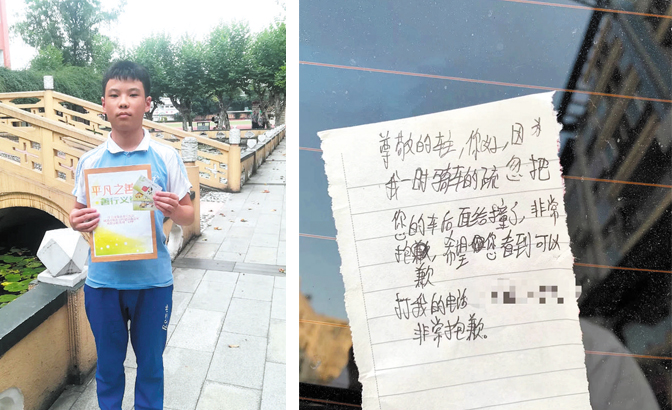 平凡之
善行义
尊敬的车主，你好，因为
我一时骑车的疏忽把
您的车后面给撞了，非常
抱，希望您看到可以
歉
打我的电话
非常抱歉。